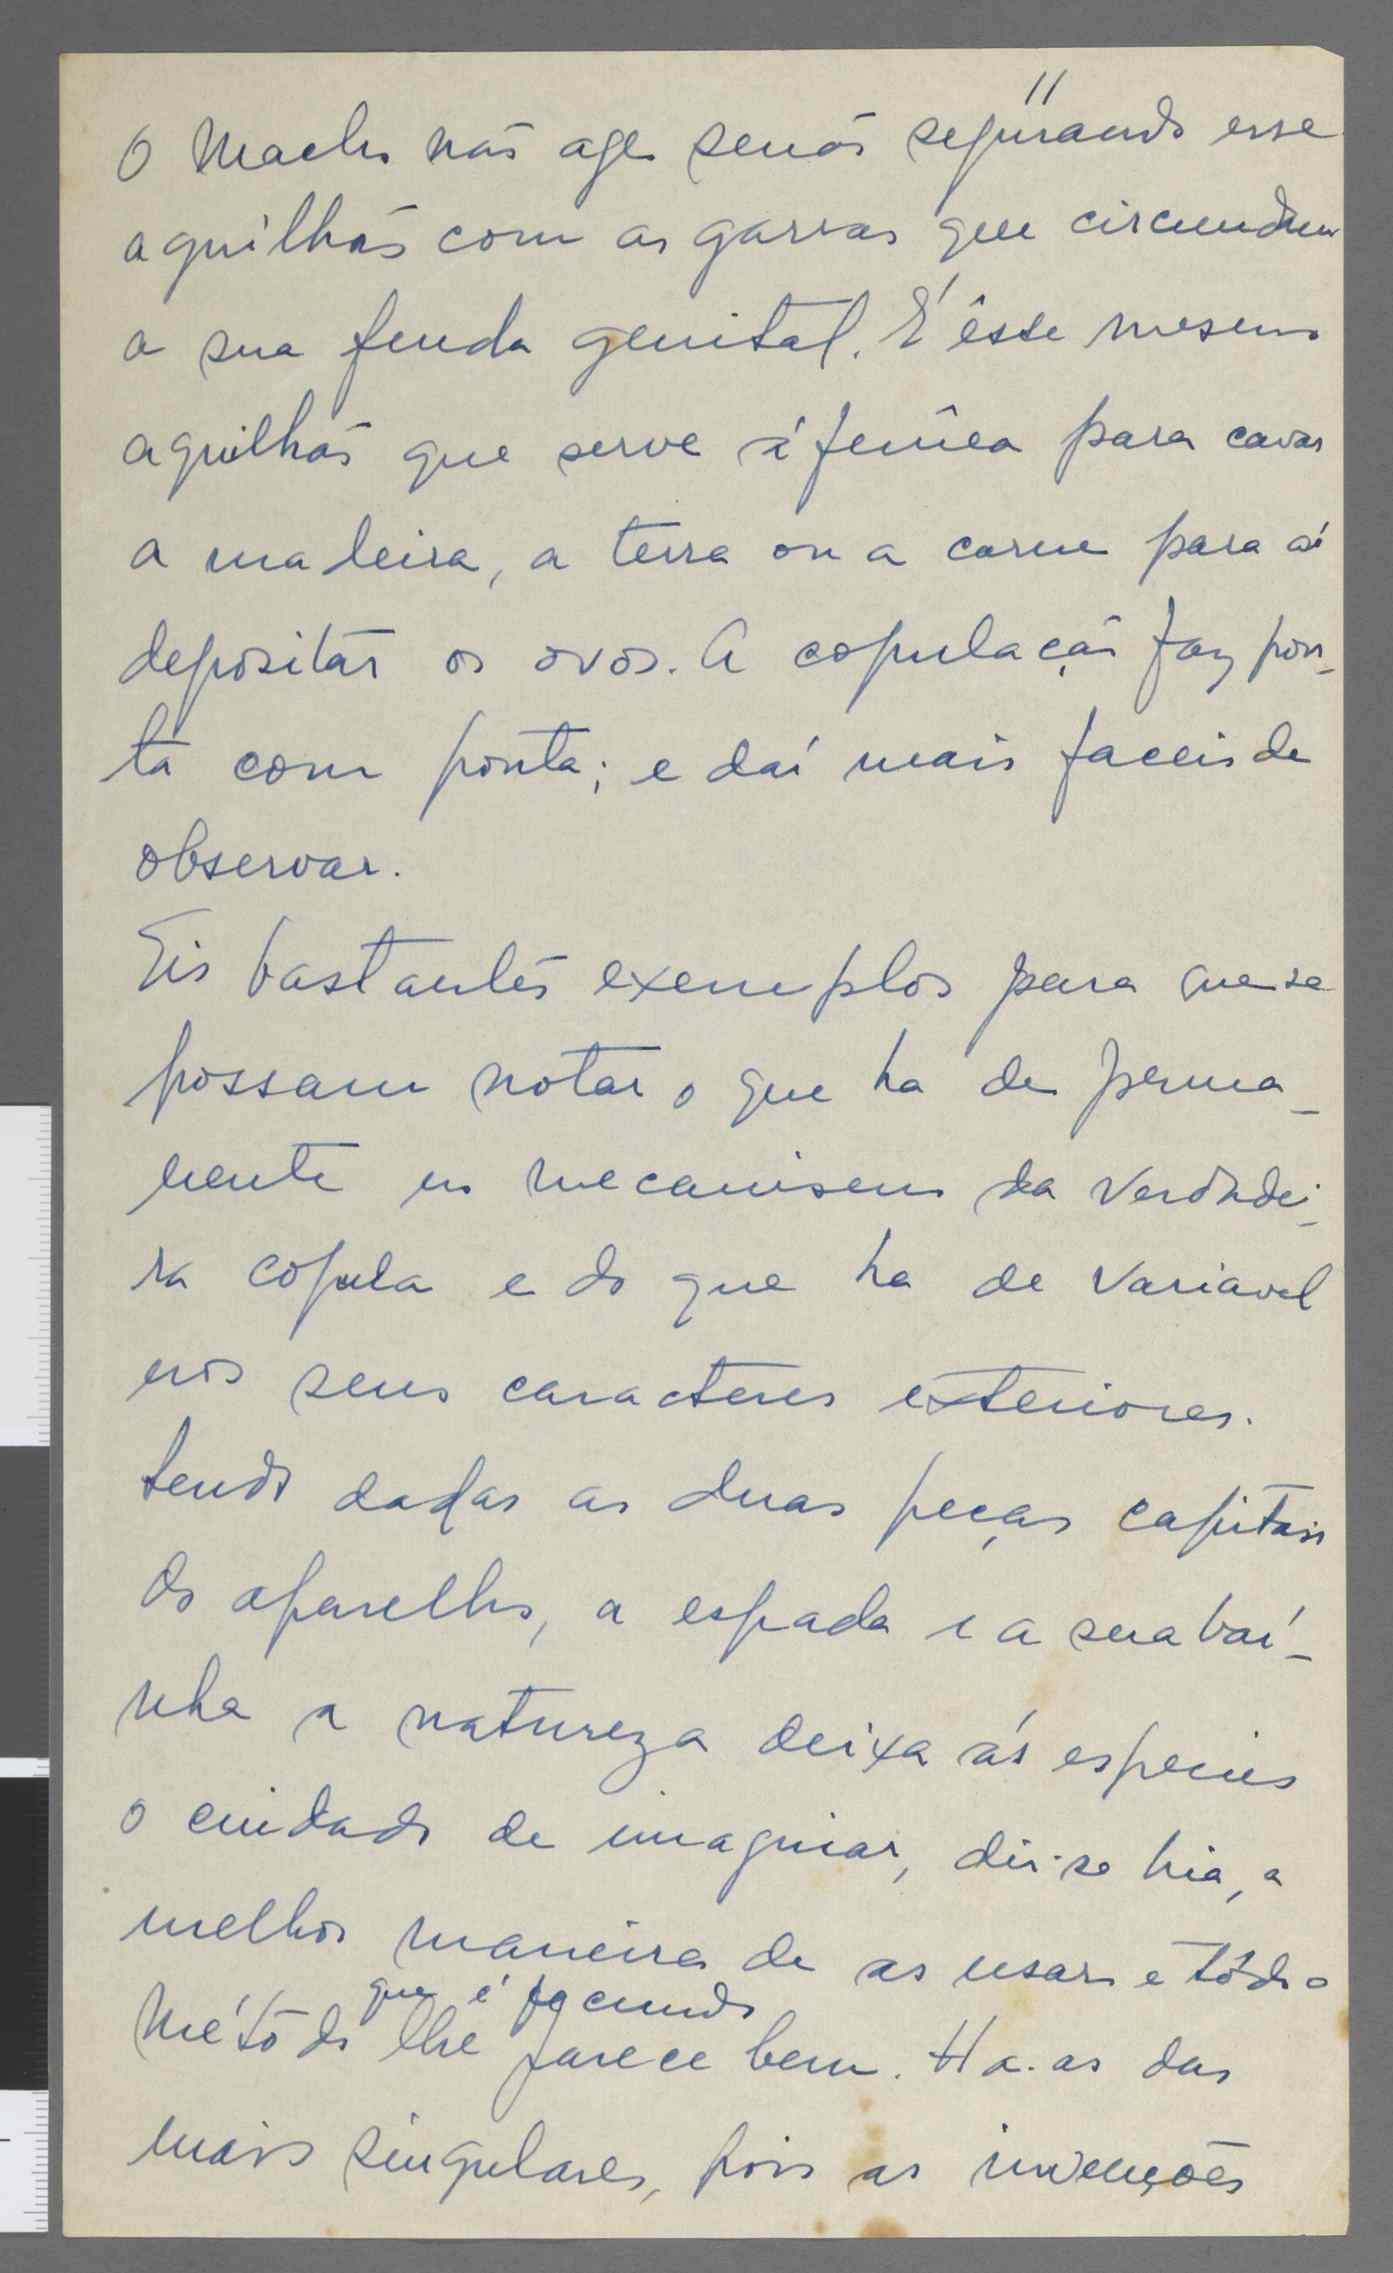 11
O macho não age senão segurando esse
aguilhão com as garras que circundam
a sua fenda genital. É êsse mesmo
aguilhão que serve á femêa para cavar
a madeira, a terra ou a carne para aí
depositar os ovos. A copulação faz pon-
ta com ponta; e daí mais faceis de
observar.
Eis bastantes exemplos para que se
possam notar o que ha de perma-
nente no mecanismo da verdadei-
ra copula e do que ha de variavel
nos seus caracteres exteriores.
tendo dadas as duas peças capitais
do aparelho, a espada e a sua baí-
nha a natureza deixa ás especies
o cuidado de imaginar, dir-se hia, a
melhor maneira de as usar e todo o
que é fecundo
método lhe parece bem. Ha-as das
mais singulares, pois as invenções